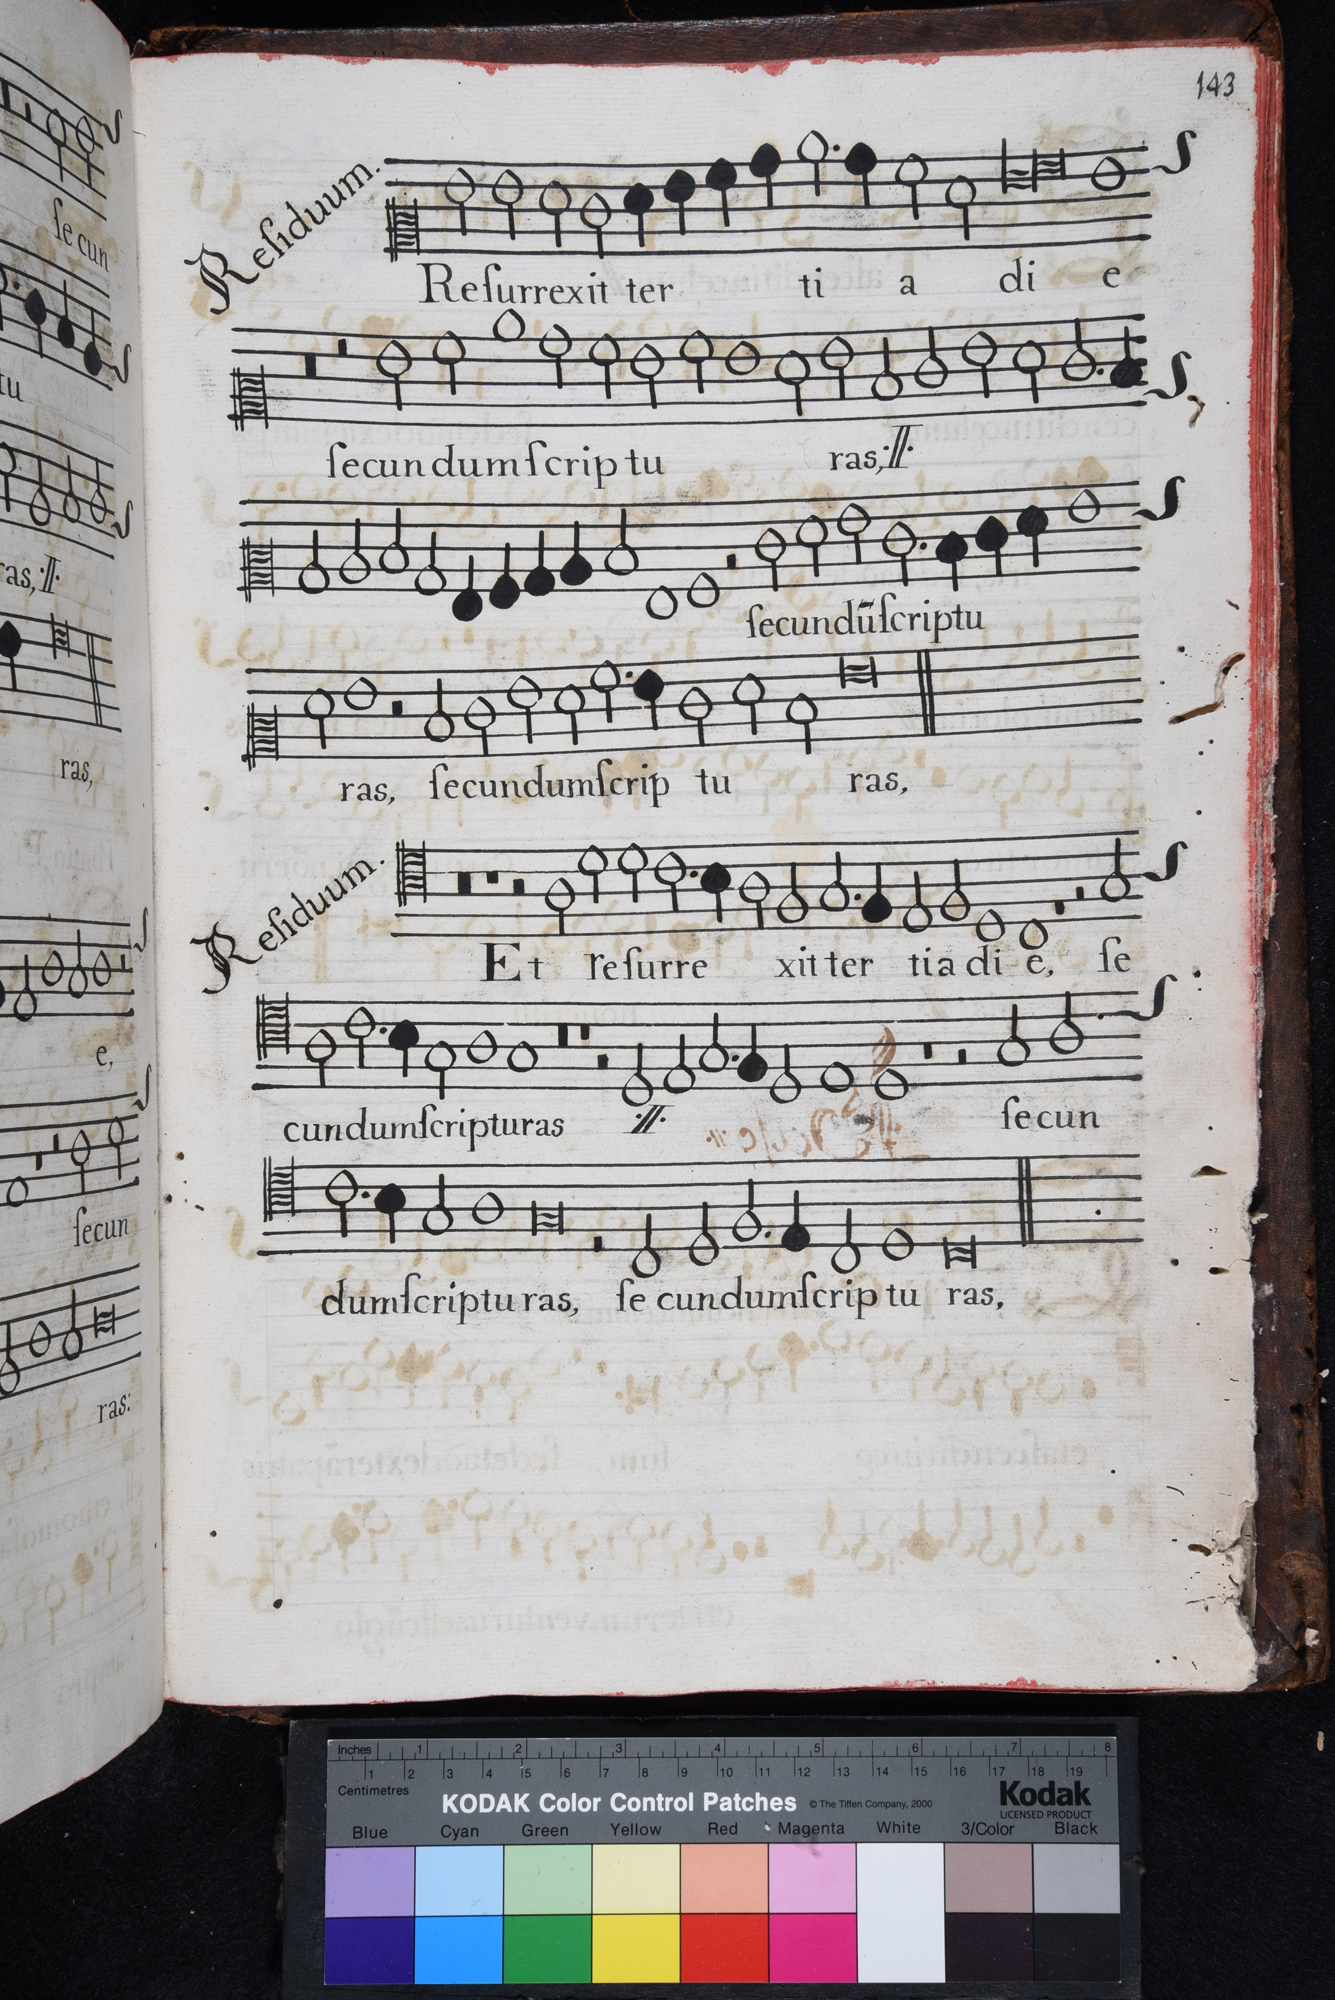 143
Reſiduum.
Reſurrexit ter ti a di e
ſecundumſcriptu ras, :||:
ſecundũſcriptu
ras, ſecundumſcrip tu ras,
Reſiduum.
Et reſurre xit ter tia di e, ſe
cundumſcripturas :||: ſecun
dumſcriptu ras, ſe cundumſcrip tu ras,
ſe cun
tu
ras, :||:
ras,
e,
ſecun
ras:
Inches 1 2 3 4 5 6 7 8
1 2 3 4 5 6 7 8 9 10 11 12 13 14 15 16 17 18 19
Centimetres
KODAK Color Control Patches © The Tiffen Company, 2000 Kodak
LICENSED PRODUCT
Blue Cyan Green Yellow Red Magenta White 3/Color Black